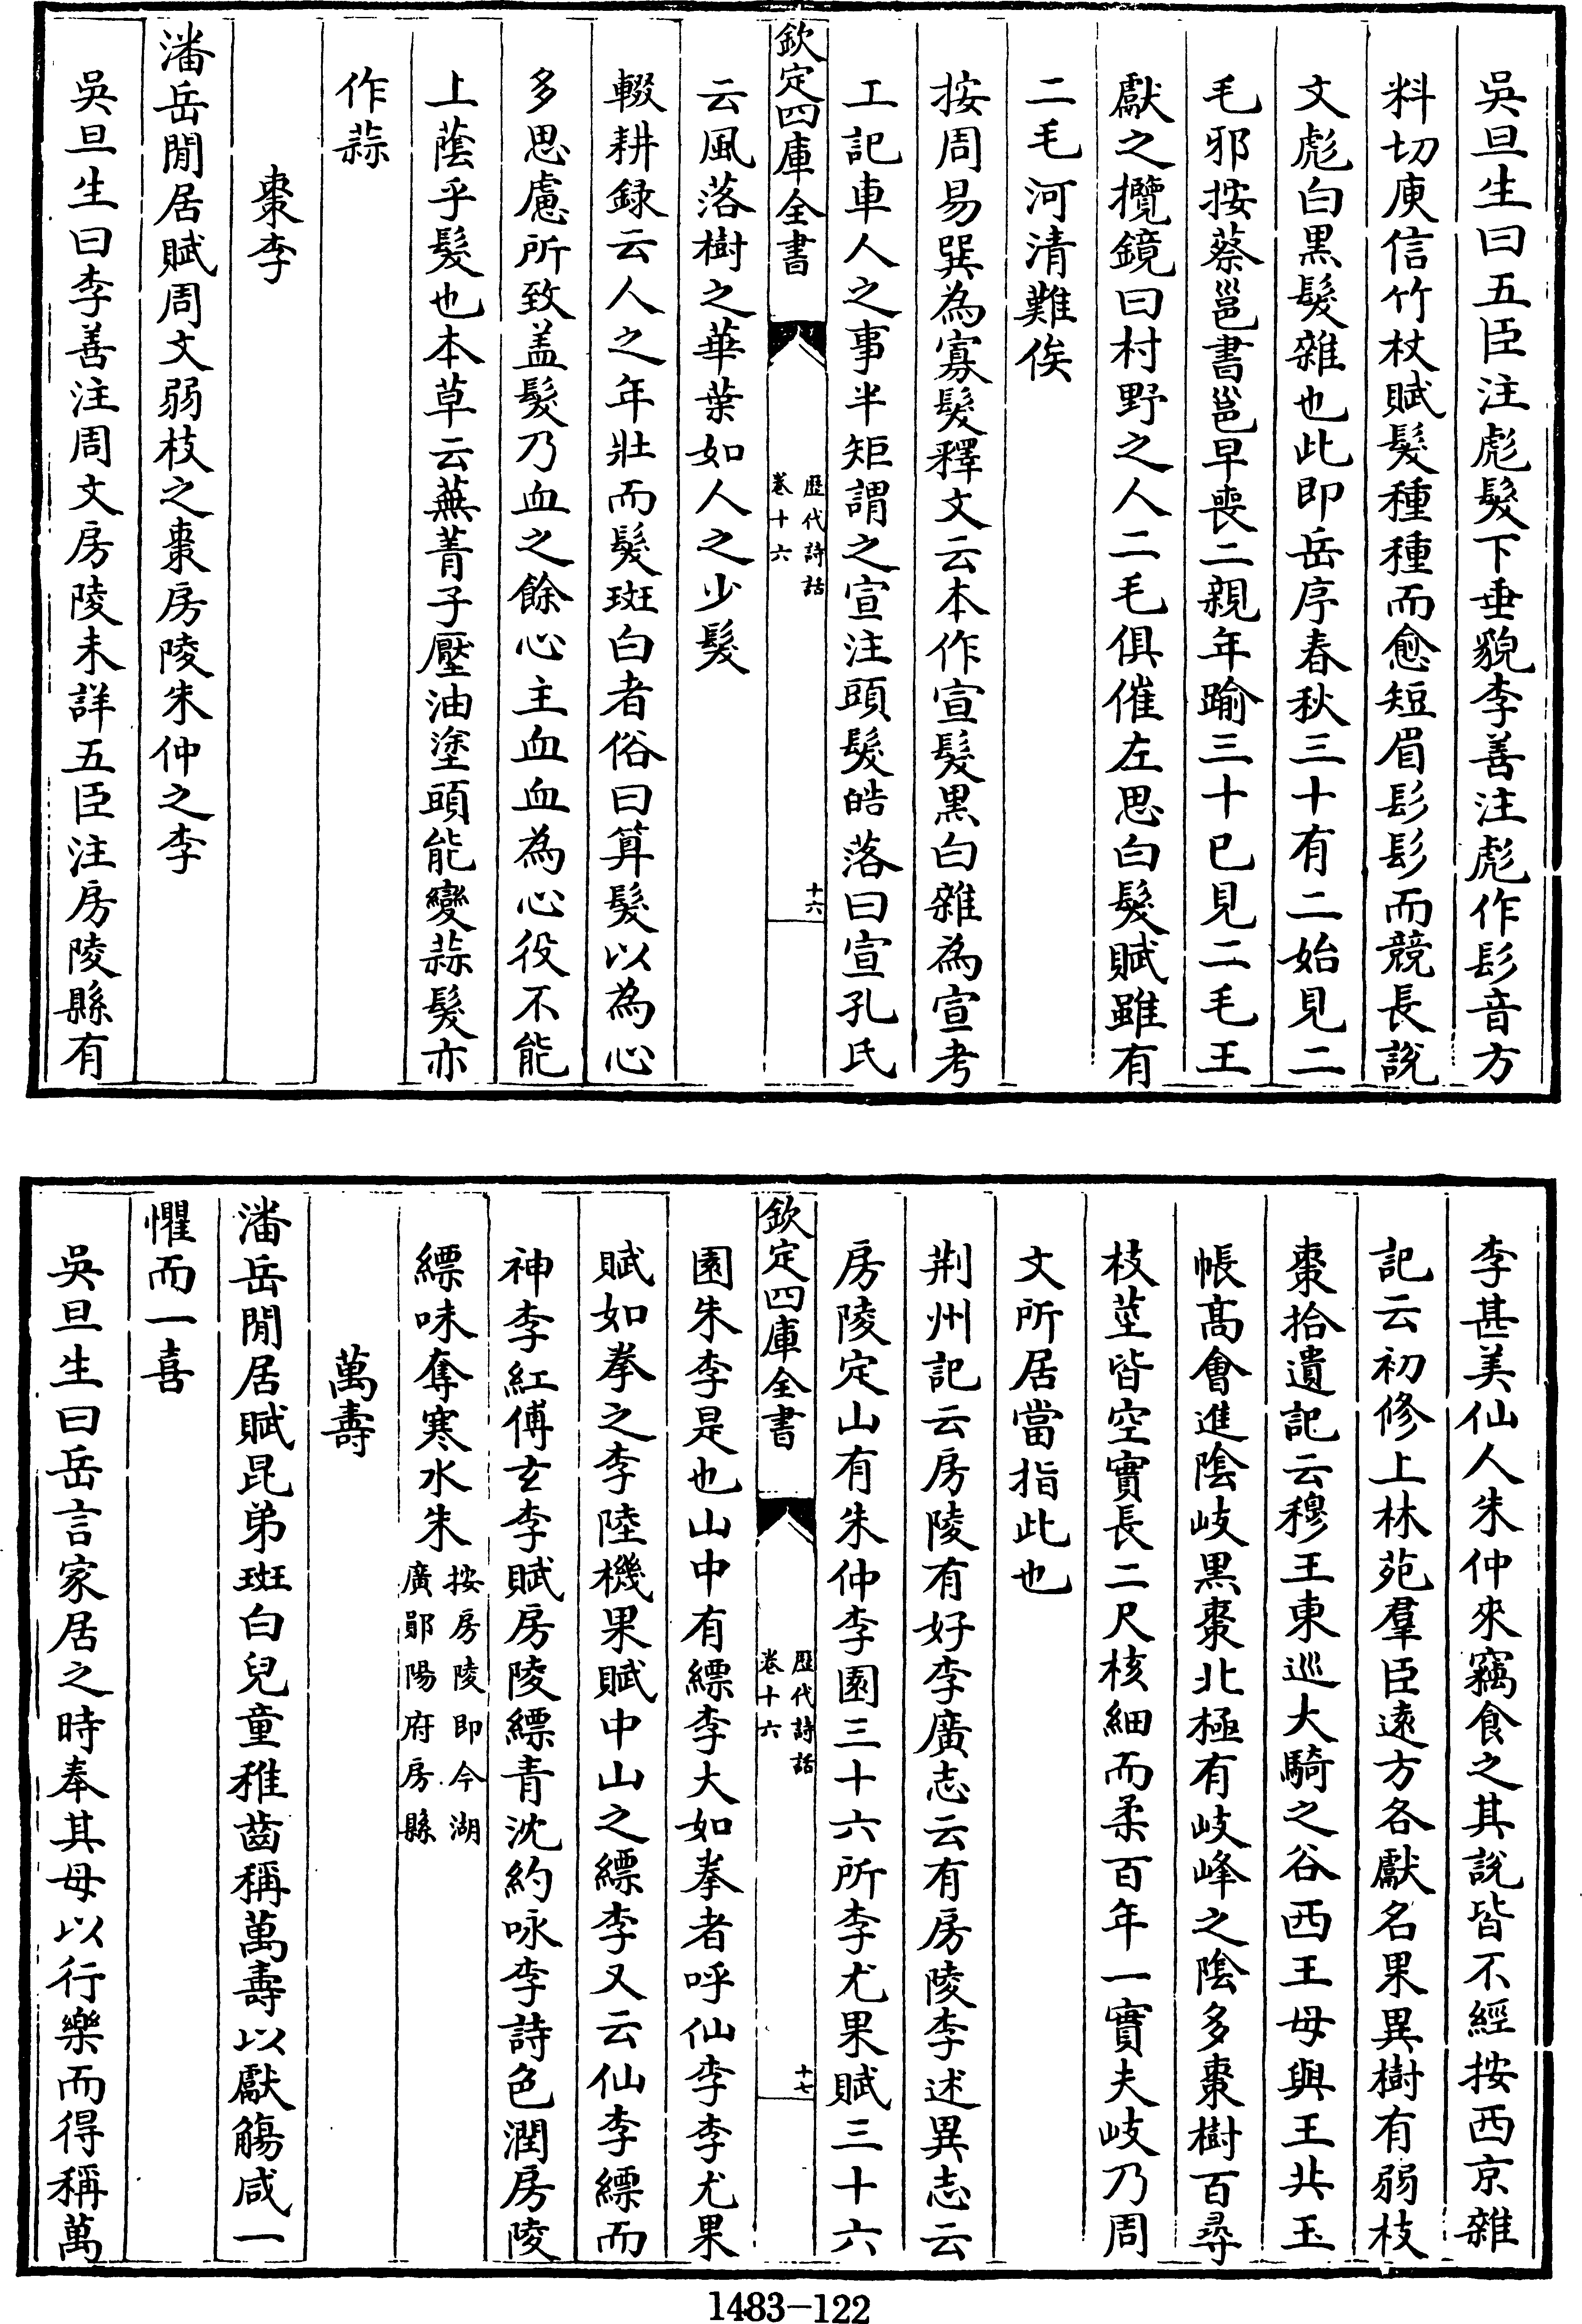 吳旦生曰五臣注彪髮下垂貌李善注彪作髟音方
料切庾信竹杖賦髮種種而愈短眉髟髟而競長說
文彪白黒髮雜也此即岳序春秋三十有二始見二
毛邪按蔡邕書邕早喪二親年踰三十已見二毛王
獻之攬鏡曰村野之人二毛俱催左思白髮賦雖有
二毛河清難俟
按周易巽為寡髮釋文云本作宣髮黒白雜為宣考
工記車人之事半矩謂之宣注頭髮皓落曰宣孔氏
欽定四庫全書
歴代詩話
卷十六
十六
云風落樹之華葉如人之少髮
輟耕録云人之年壯而髮斑白者俗曰算髮以為心
多思慮所致盖髮乃血之餘心主血血為心役不能
上蔭乎髮也本草云蕪菁子壓油塗頭能變蒜髮亦
作蒜
棗李
潘岳閒居賦周文弱枝之棗房陵朱仲之李
吳旦生曰李善注周文房陵未詳五臣注房陵縣有
李甚美仙人朱仲來竊食之其說皆不經按西京雜
記云初修上林苑羣臣遠方各獻名果異樹有弱枝
棗拾遺記云穆王東巡大騎之谷西王母與王共玉
帳高會進陰岐黒棗北極有岐峰之陰多棗樹百尋
枝莖皆空實長二尺核細而柔百年一實夫岐乃周
文所居當指此也
荆州記云房陵有好李廣志云有房陵李述異志云
房陵定山有朱仲李園三十六所李尤果賦三十六
欽定四庫全書
歴代詩話
卷十六
十七
園朱李是也山中有縹李大如拳者呼仙李李尤果
賦如拳之李陸機果賦中山之縹李又云仙李縹而
神李紅傅玄李賦房陵縹青沈約咏李詩色潤房陵
縹味奪寒水朱按房陵即今湖
廣鄖陽府房縣
萬壽
潘岳閒居賦昆弟斑白兒童稚齒稱萬壽以獻觴咸一
懼而一喜
吳旦生曰岳言家居之時奉其母以行樂而得稱萬
1483—122